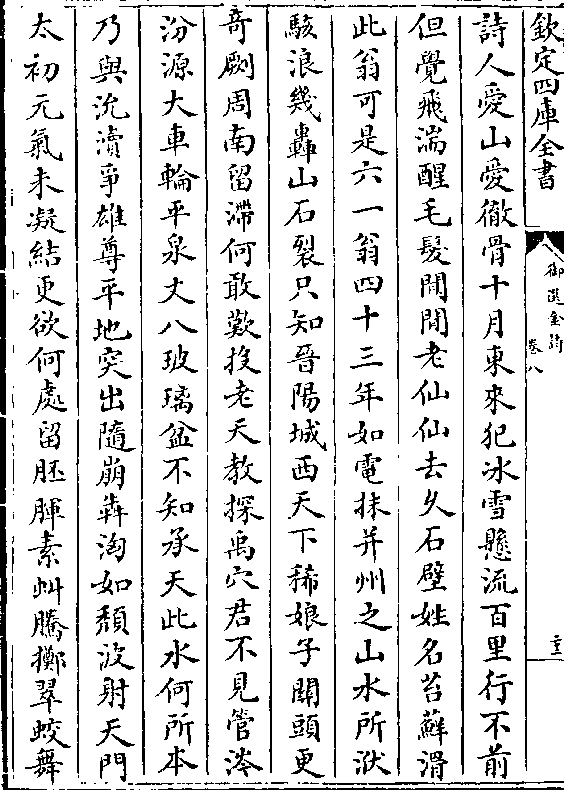 欽定四庫全書
御選金詩
卷八
詩人愛山愛徹骨十月東來犯冰雪懸流百里行不前
但覺飛湍醒毛髮閒閒老仙仙去久石壁姓名苔蘚滑
此翁可是六一翁四十三年如電抹并州之山水所洑
駭浪幾轟山石裂只知晉陽城西天下稀娘子關頭更
奇劂周南留滯何敢歎投老天教探禹穴君不見管涔
汾源大車輪平泉丈八玻璃盆不知承天此水何所本
乃與流瀆爭雄尊平地突出隨崩犇洶如頽波射天門
太初元氣未凝結更欲何處留胚腪素虯騰擲翠蛟舞